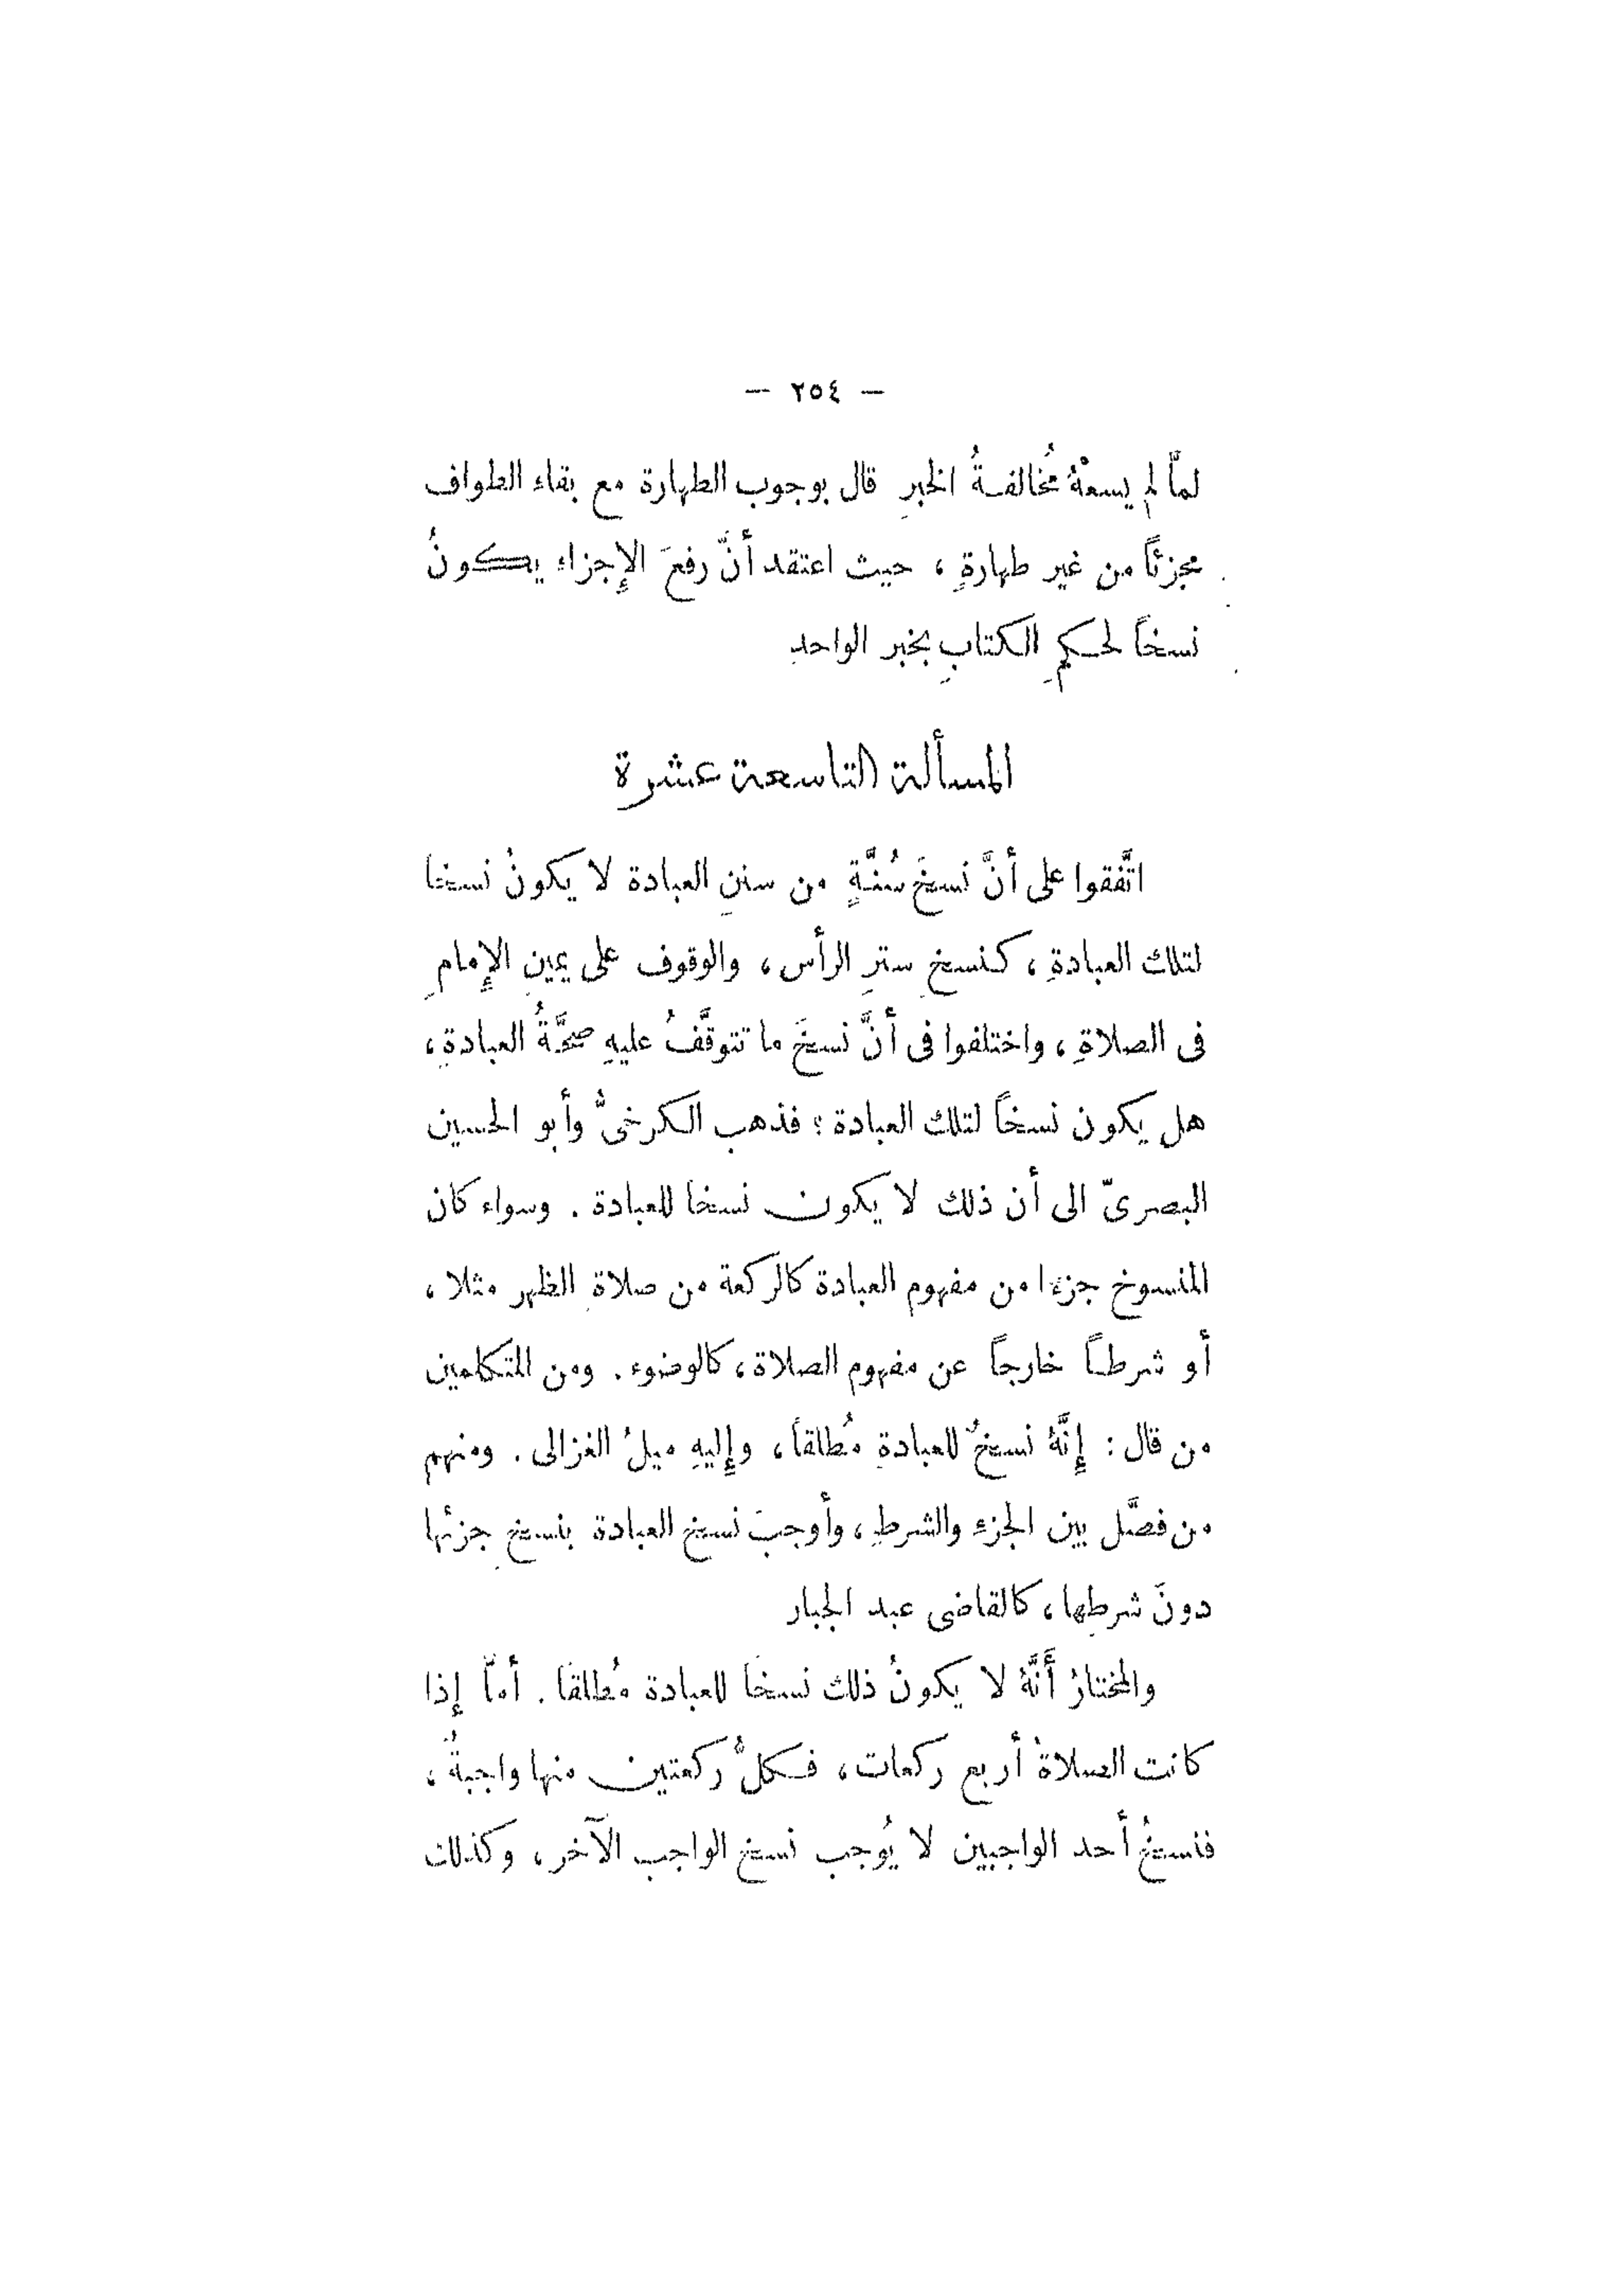 — ٢٥٤ —
لمَّا لم يسعْهُ مُخالفةُ الخبرِ قال بوجوب الطهارة مع بقاء الطواف
مجزئاً من غير طهارةٍ ، حيث اعتقد أنَّ رفعَ الإجزاء يكونُ
نسخاً لحكمِ الكتابِ بخبر الواحدِ
المسألة التاسعة عشرة
اتَّفقوا على أنَّ نسخَ سُنَّةٍ من سننِ العبادة لا يكونُ نسخا
لتلك العبادةِ ، كنسخِ سترِ الرأس ، والوقوف على يمينِ الإمامِ
فى الصلاةِ ، واختلفوا فى أنَّ نسخَ ما تتوقَّفُ عليهِ صحَّةُ العبادةِ ،
هل يكون نسخاً لتلك العبادة ؛ فذهب الكرخىُّ وأبو الحسين
البصرىّ الى أن ذلك لا يكون نسخا للعبادة . وسواء كان
المنسوخ جزءا من مفهوم العبادة كالركعة من صلاةِ الظهر مثلا ،
أو شرطاً خارجاً عن مفهوم الصلاة ، كالوضوء . ومن المتكلمين
من قال : إنَّهُ نسخٌ للعبادةِ مُطلقاً ، وإليهِ ميلُ الغزالى . ومنهم
من فصَّل بين الجزءِ والشرطِ ، وأوجبَ نسخ العبادة بنسخِ جزئها
دونَ شرطِها ، كالقاضى عبد الجبار
والمختارُ أنَّهُ لا يكونُ ذلك نسخاً للعبادة مُطلقاً . أمّا إذا
كانت الصلاةُ أربع ركعات ، فكلُّ ركعتين منها واجبةُ ،
فنسخُ أحد الواجبين لا يُوجب نسخ الواجب الآخر ، وكذلك